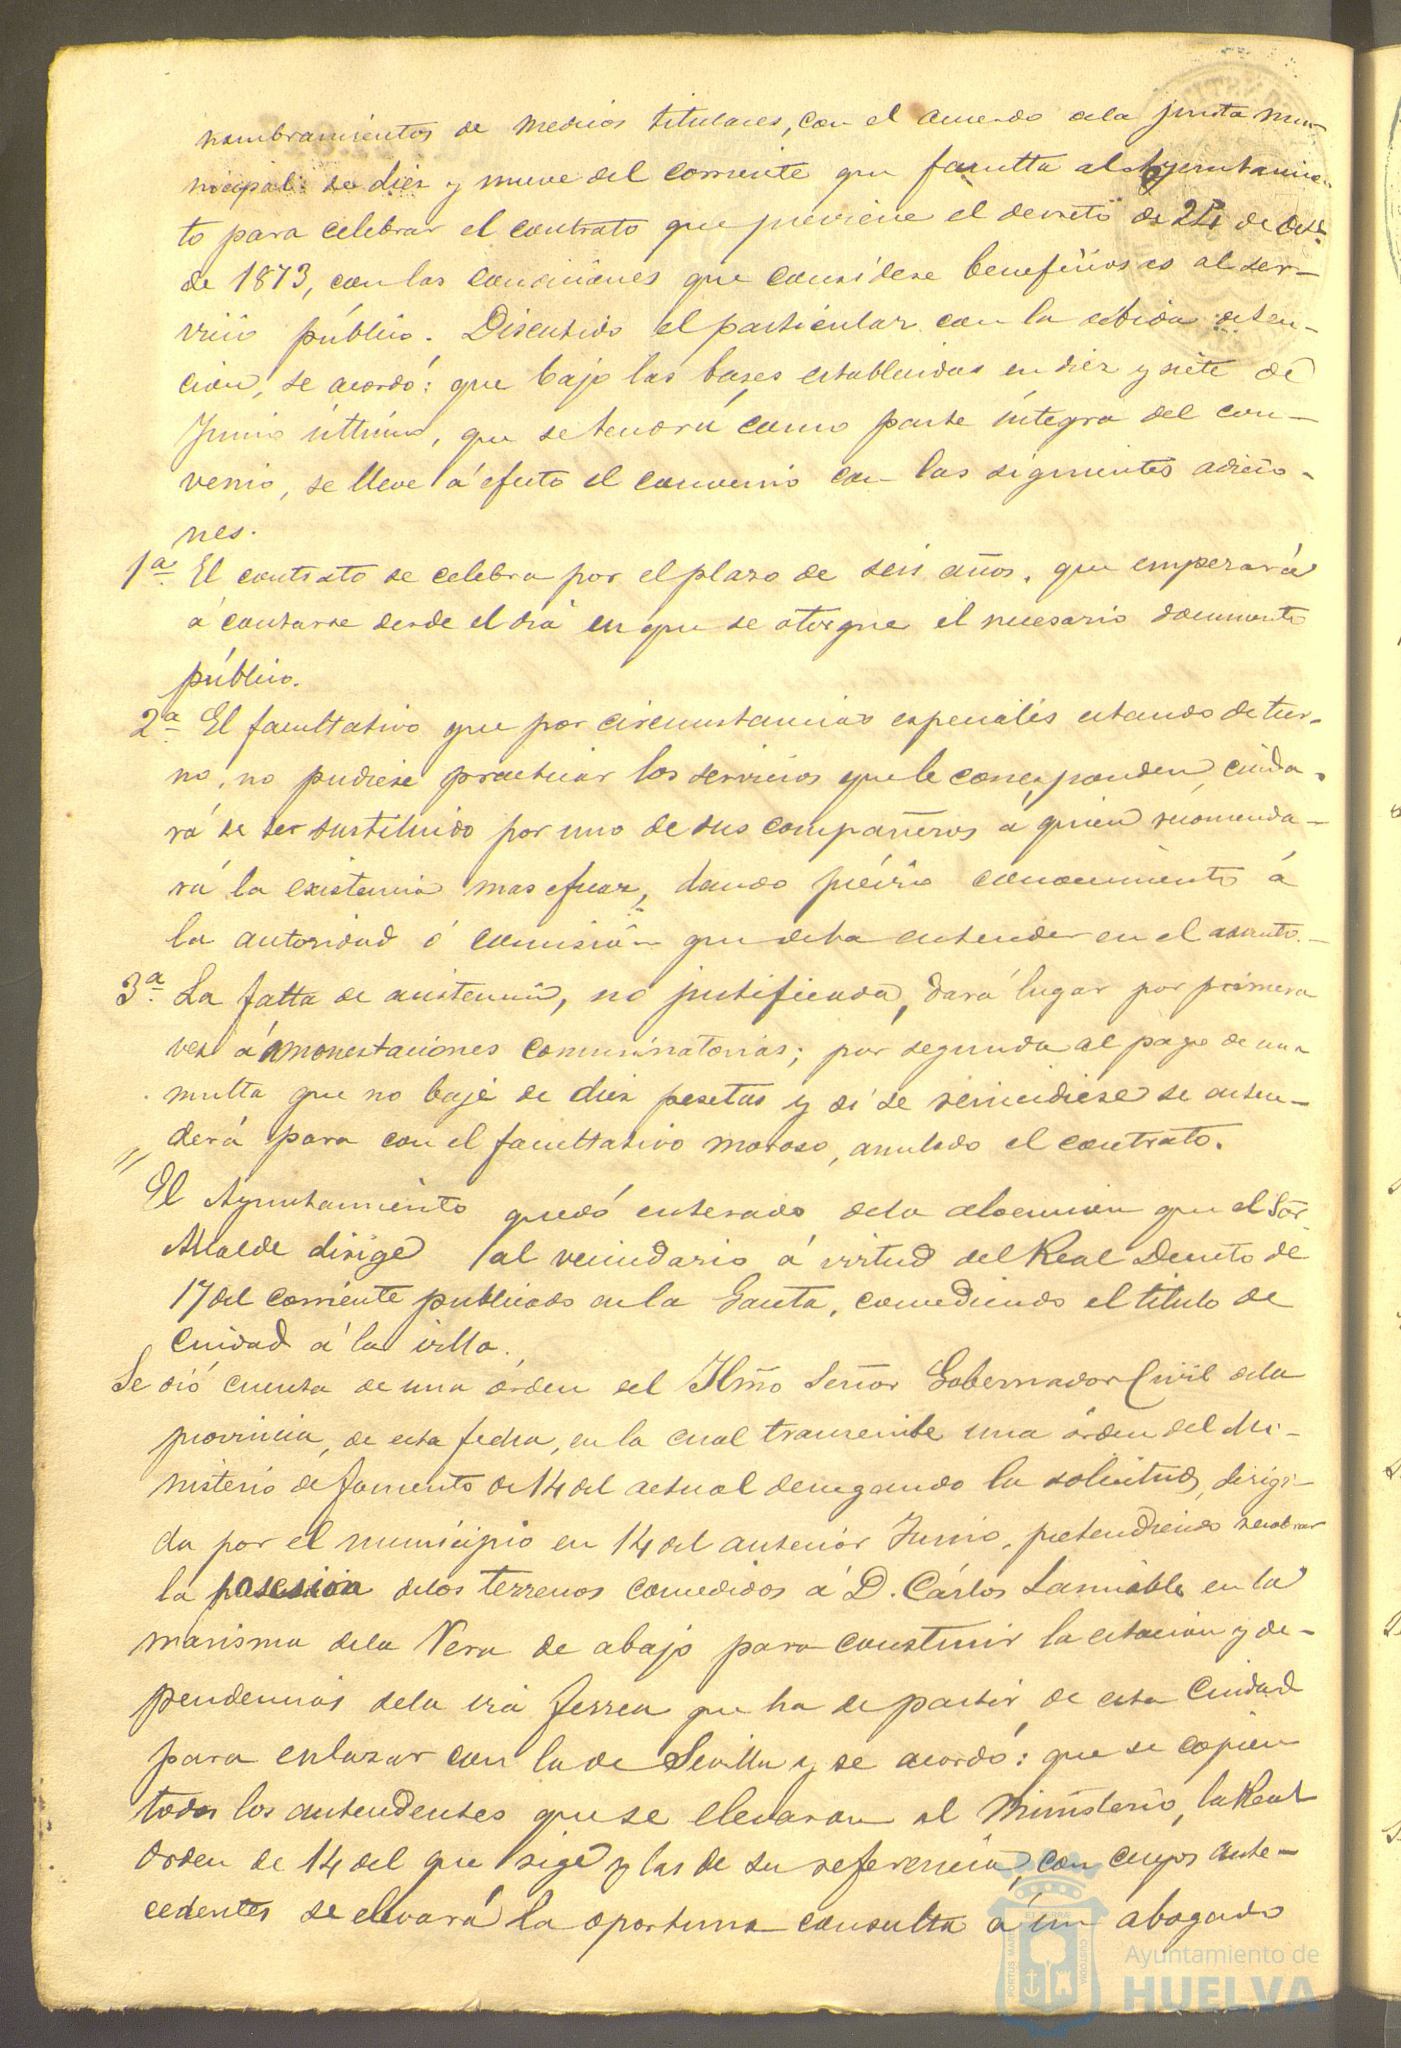 nombramientos de medicos titulares, con el acuerdo dela junta mu-
nicipal de diez y nueve del corriente que faculta al Ayuntamien-
to para celebrar el contrato que previene el decreto de 24 de Octe.
de 1873, con las condiciones que considere beneficiosas al ser-
vicio público. Discutido el particular con la debida deten-
cion, se acordó: que bajo las bases establecidas en diez y siete de
Junio último, que se tendrá como parte íntegra del con-
venio, se lleve á efecto el convenio con las siguientes adicio-
nes.
1ª El contrato se celebra por el plazo de seis años, que empezará
á contarse desde el dia en que se otorgue el necesario documento
público.
2ª El facultativo que por circunstancias especiales estando de tur-
no, no pudiese practicar los servicios que le corresponden, cuida-
rá se ser sustituido por uno de sus compañeros á quien recomenda-
rá la existencia mas eficaz, dando prévio conocimiento á
la autoridad ó comisión que deba entender en el asunto.-
3ª La falta de asistencia, no justificada, dará lugar por primera
vez á amonestaciones comminatorias; por segunda al pago de una
multa que no baje de diez pesetas y si se reincidiese se enten-
derá para con el facultativo moroso, anulado el contrato.
El Ayuntamiento quedó enterado dela alocucion que el Sor.
Alcalde dirige al vecindario á virtud del Real Decreto de
17 del corriente publicado en la Gaceta, concediendo el titulo de
Ciudad á la villa.
Se dió cuenta de una órden del Ilmo Señor Gobernador Civil dela
provincia, de esta fecha, en la cual transcribe una órden del Mi-
nisterio de Fomento de 14 del actual denegando la solicitud, dirigi-
da por el municipio en 14 del anterior Junio, pretendiendo recobrar
la posesion delos terrenos concedidos á D. Cárlos Lamiable en la
marisma dela Vera de abajo para construir la estacion y de-
pendencias dela via ferrea que ha de partir de esta Ciudad
para enlazar con la de Sevilla y se acordó: que se copien
todos los antecedentes que se elevaron al Ministerio, la Real
Orden de 14 del que rige y las de su referencia, con cuyos ante-
cedentes se elevará la oportuna consulta á un abogado
Ayuntamiento de
HUELVA